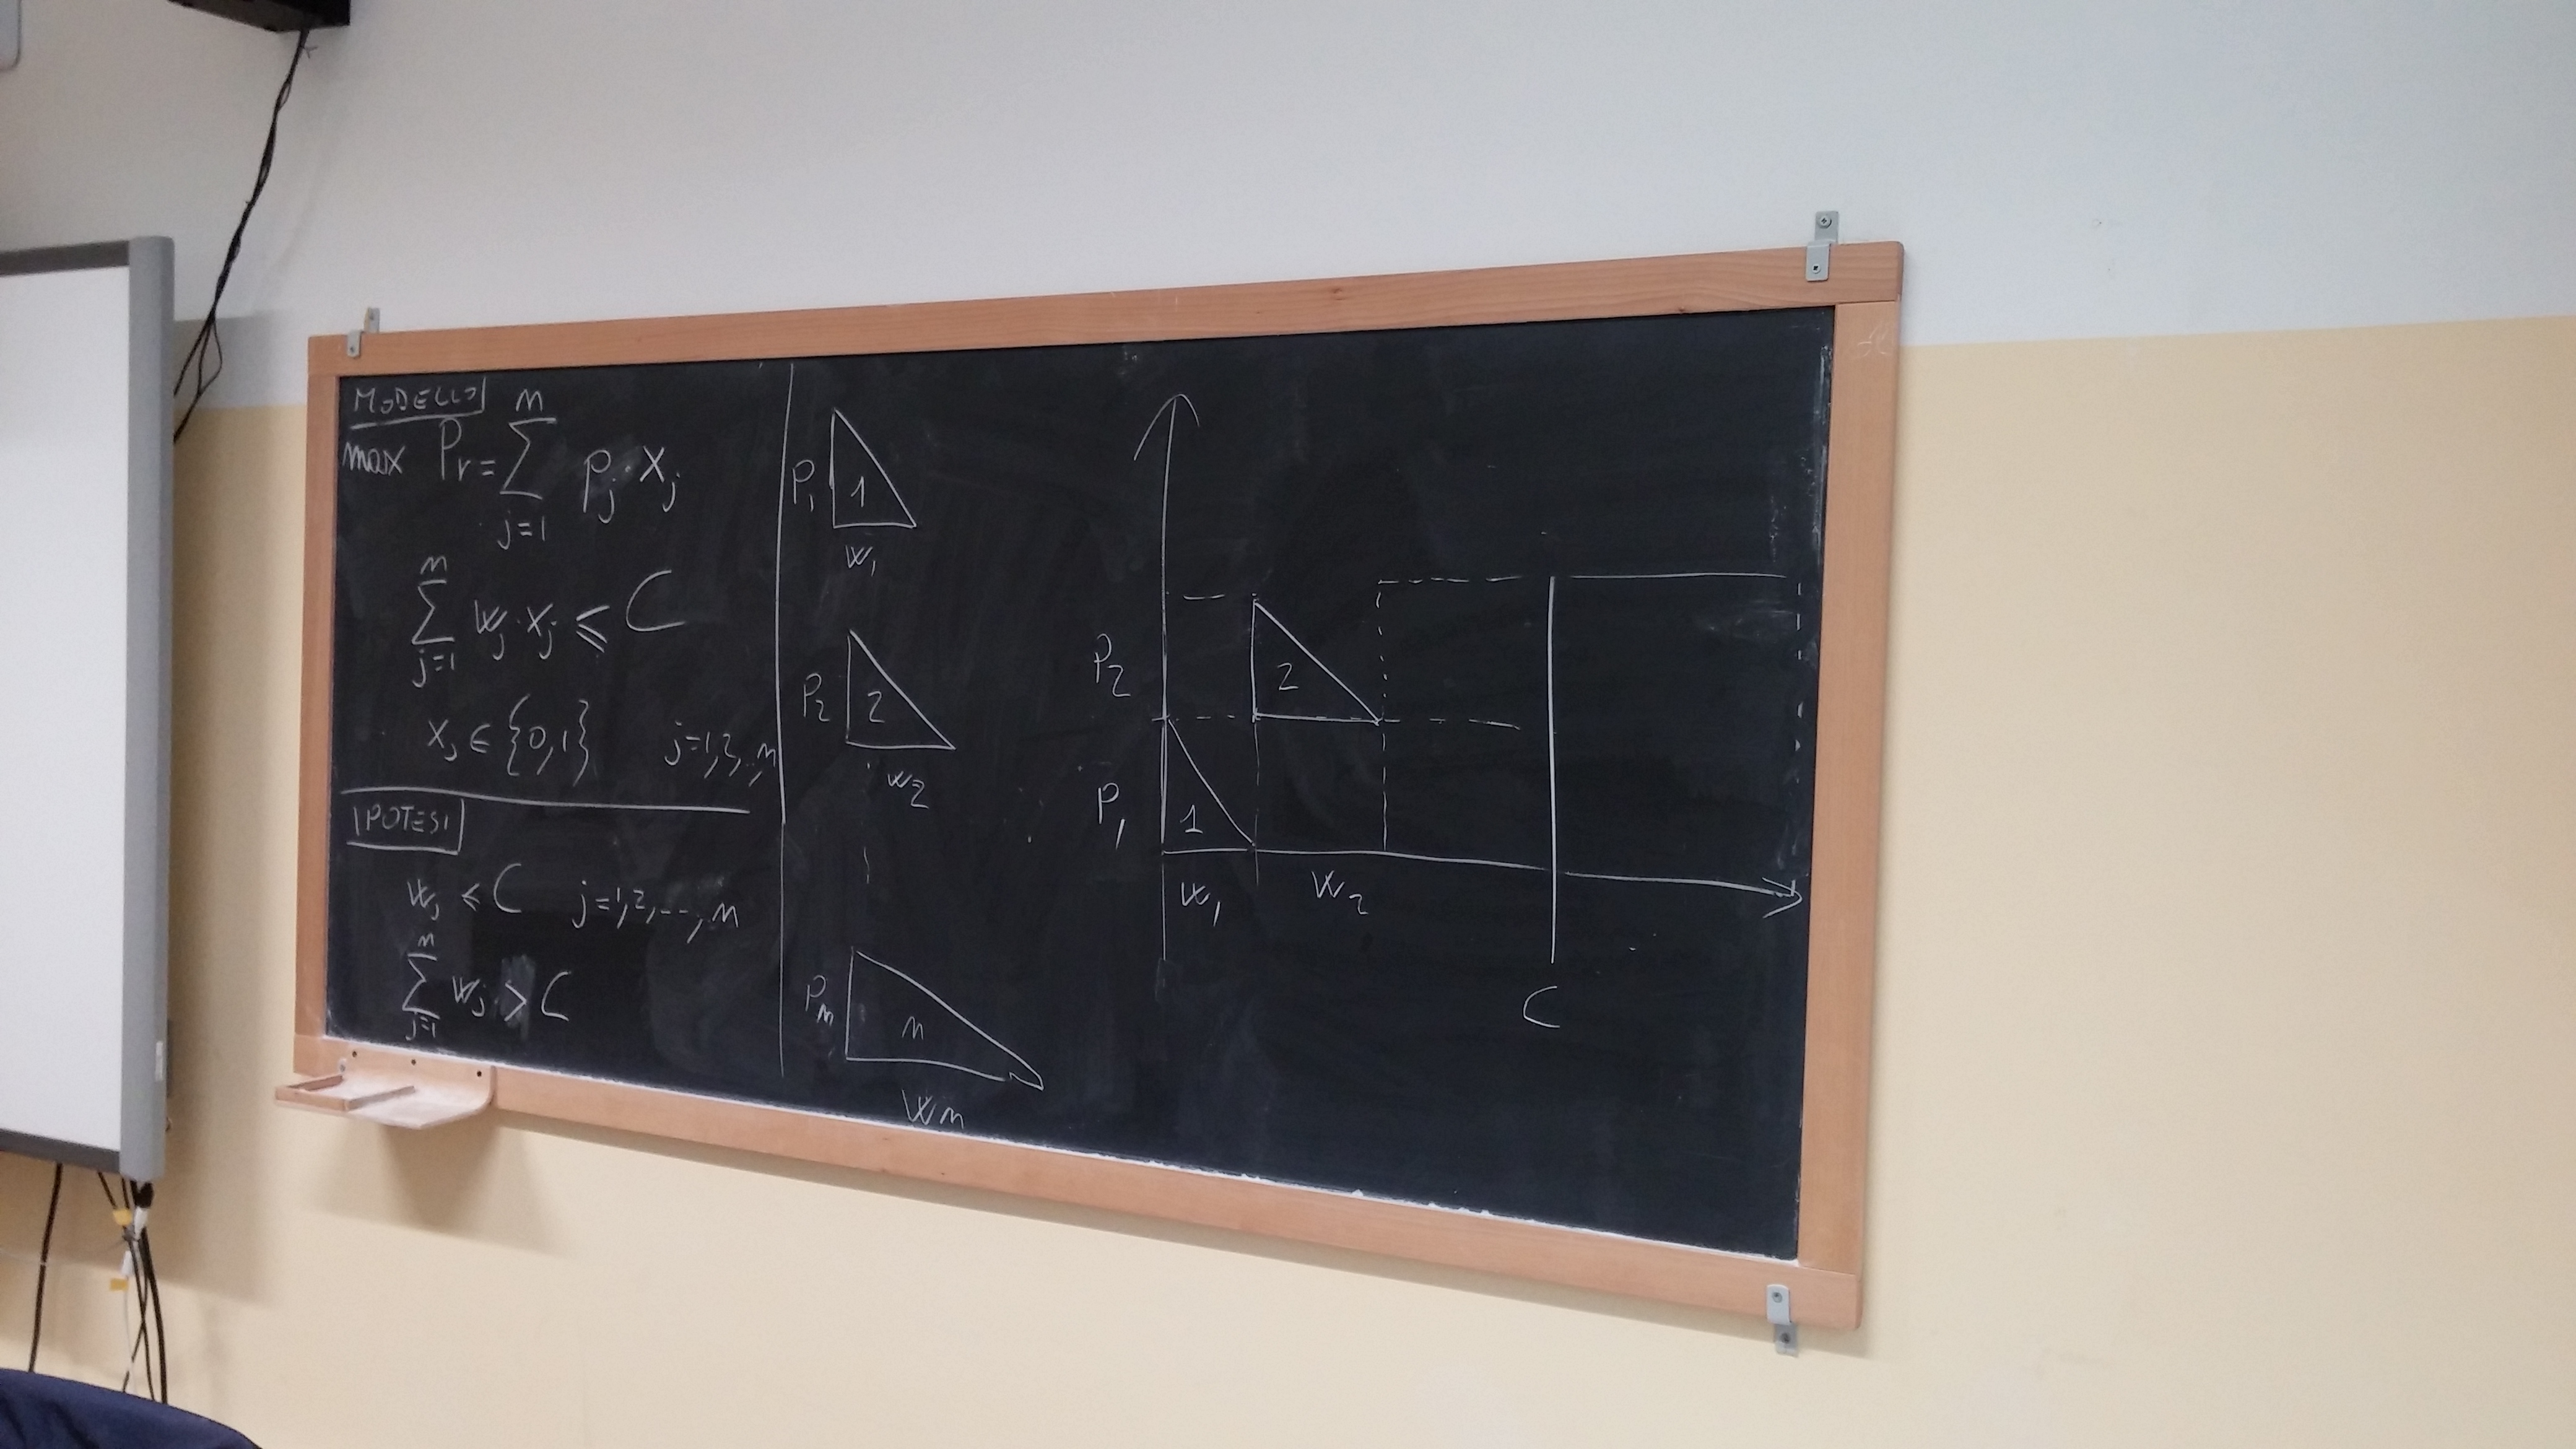 MODELLO
max Pr = ∑ⁿⱼ₌₁ pⱼ · xⱼ
∑ⁿⱼ₌₁ wⱼ · xⱼ ⩽ C
xⱼ ∈ {0,1} j=1,2,..,n
IPOTESI
wⱼ ⩽ C j=1,2,---,n
∑ⁿⱼ₌₁ wⱼ > C
P₁ 1
w₁
P₂ 2
w₂
Pₙ n
Wn
P₂ 2
P₁ 1
w₁ w₂
C